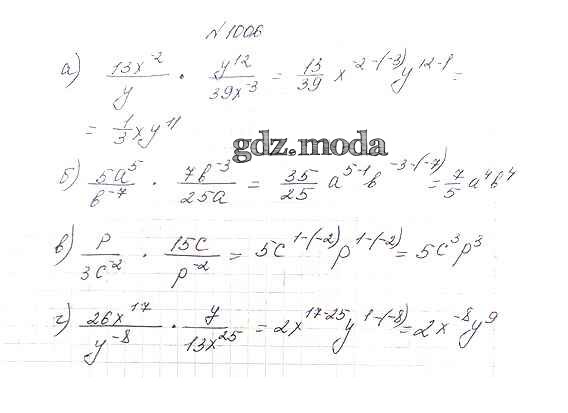 №1006
а) 13x⁻²/y · y¹²/39x⁻³ = 13/39 x⁻²⁻⁽⁻³⁾y¹²⁻¹ =
= 1/3 xy¹¹
gdz.moda
б) 5a⁵/b⁻⁷ · 7b⁻³/25a = 35/25 a⁵⁻¹b⁻³⁻⁽⁻⁷⁾ = 7/5 a⁴b⁴
в) p/3c⁻² · 15c/p⁻² = 5c¹⁻⁽⁻²⁾p¹⁻⁽⁻²⁾ = 5c³p³
г) 26x¹⁷/y⁻⁸ · y/13x²⁵ = 2x¹⁷⁻²⁵y¹⁻⁽⁻⁸⁾ = 2x⁻⁸y⁹